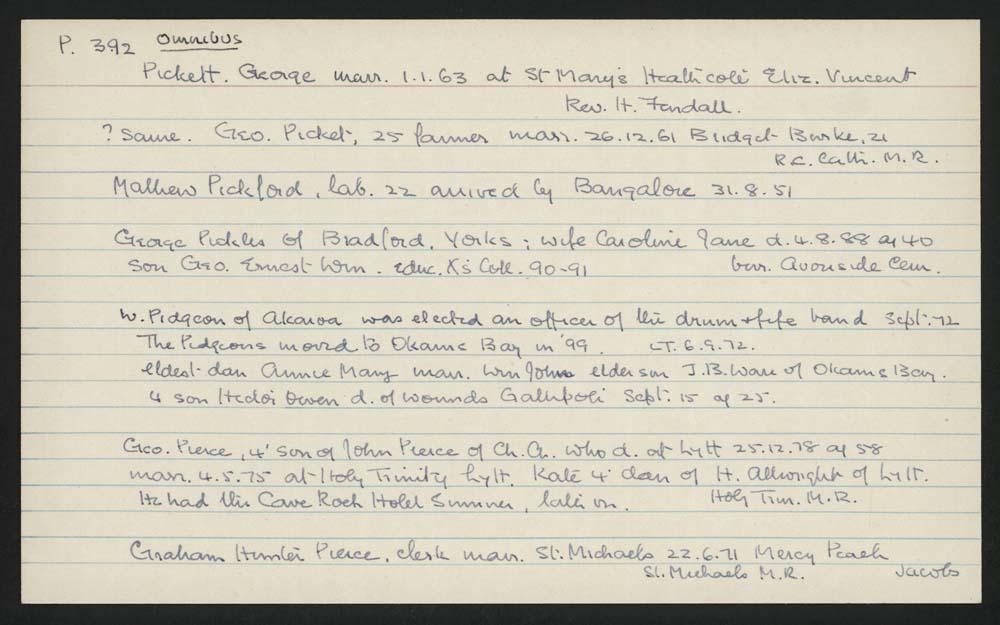 P. 392 Omnibus
Pickett. George marr. 1.1.63 at St Mary's Heathcote Eliz. Vincent
Rev. H. Fendall.
? Same. Geo. Picket, 25 farmer marr. 26.12.61 Bridget Burke, 21
R.C. Cath. M.R.
Mathew Pickford, lab. 22 arrived by Bangalore 31.8.51
George Pickles of Bradford, Yorks; wife Caroline Jane d. 4.8.88 ag 40
son Geo. Ernest Wm. educ. X's Coll. 90-91 bur. Avonside Cem.
W. Pidgeon of Akaroa was elected an officer of the drum & fife band Sept. 72
The Pidgeons moved to Okains Bay in '99. LT. 6.9.72.
eldest dau Annie Mary marr. Wm John elder son J.B. Ware of Okains Bay.
4 son Hector Owen d. of wounds Gallipoli Sept. 15 ag 25.
Geo. Pierce, 4' son of John Pierce of Ch.Ch. who d. at Lytt 25.12.78 ag 58
marr. 4.5.75 at Holy Trinity Lytt. Kate 4' dau of H. Allwright of Lytt.
He had the Cave Rock Hotel Sumner, later on. Holy Trin. M.R.
Graham Hunter Pierce, clerk marr. St. Michaels 22.6.71 Mercy Peach
St. Michaels M.R. Jacobs